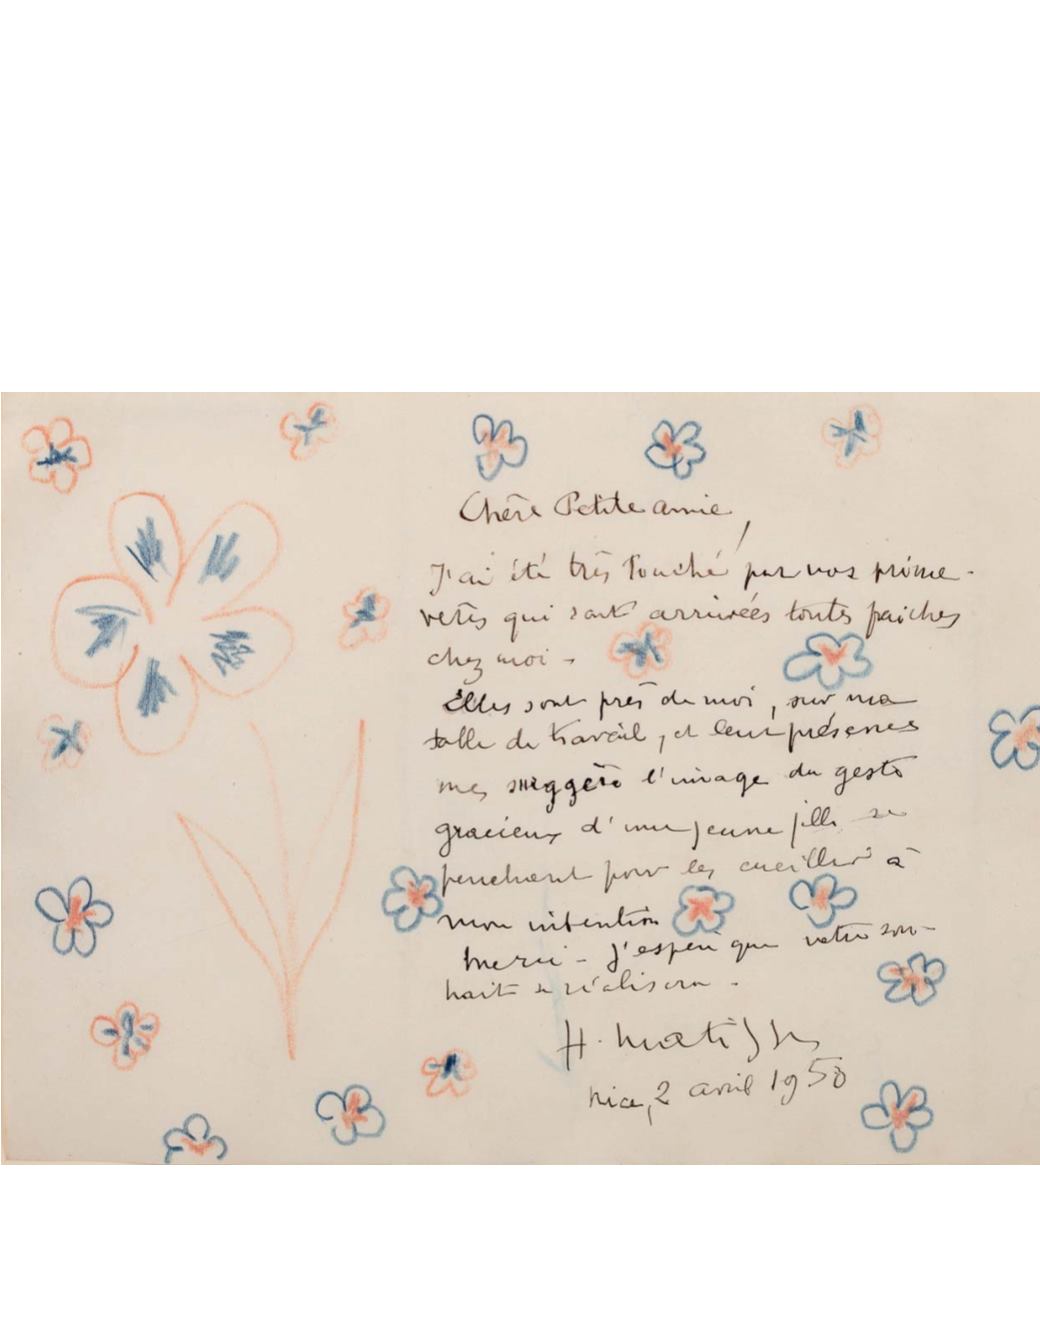 Chère Petite amie,
J'ai été très touché par vos prime-
vères qui sont arrivées toutes fraîches
chez moi -
Elles sont près de moi, sur ma
table de travail, et leur présence
me suggère l'image du geste
gracieux d'une jeune fille se
penchant pour les cueillir à
mon intention
merci - J'espère que votre sou-
hait se réalisera -
H. Matisse
Nice, 2 avril 1950